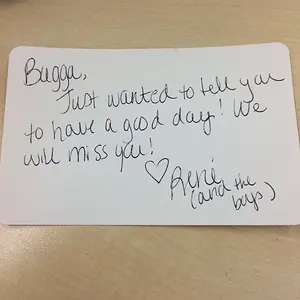 Bugga,
Just wanted to tell you
to have a good day! We
will miss you!
♡ René
(and the
boys)